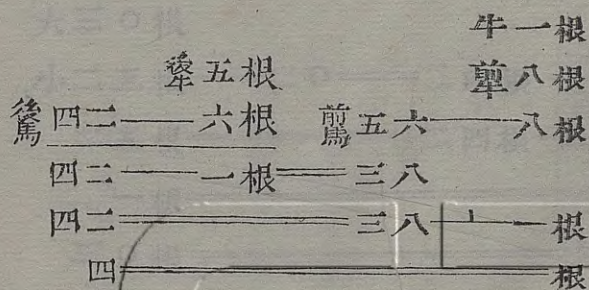 牛一根
五根 八根
後馬四二——六根 前馬五六——八根
四二——一根══三八
四二════三八—⊥—一根
四════════根